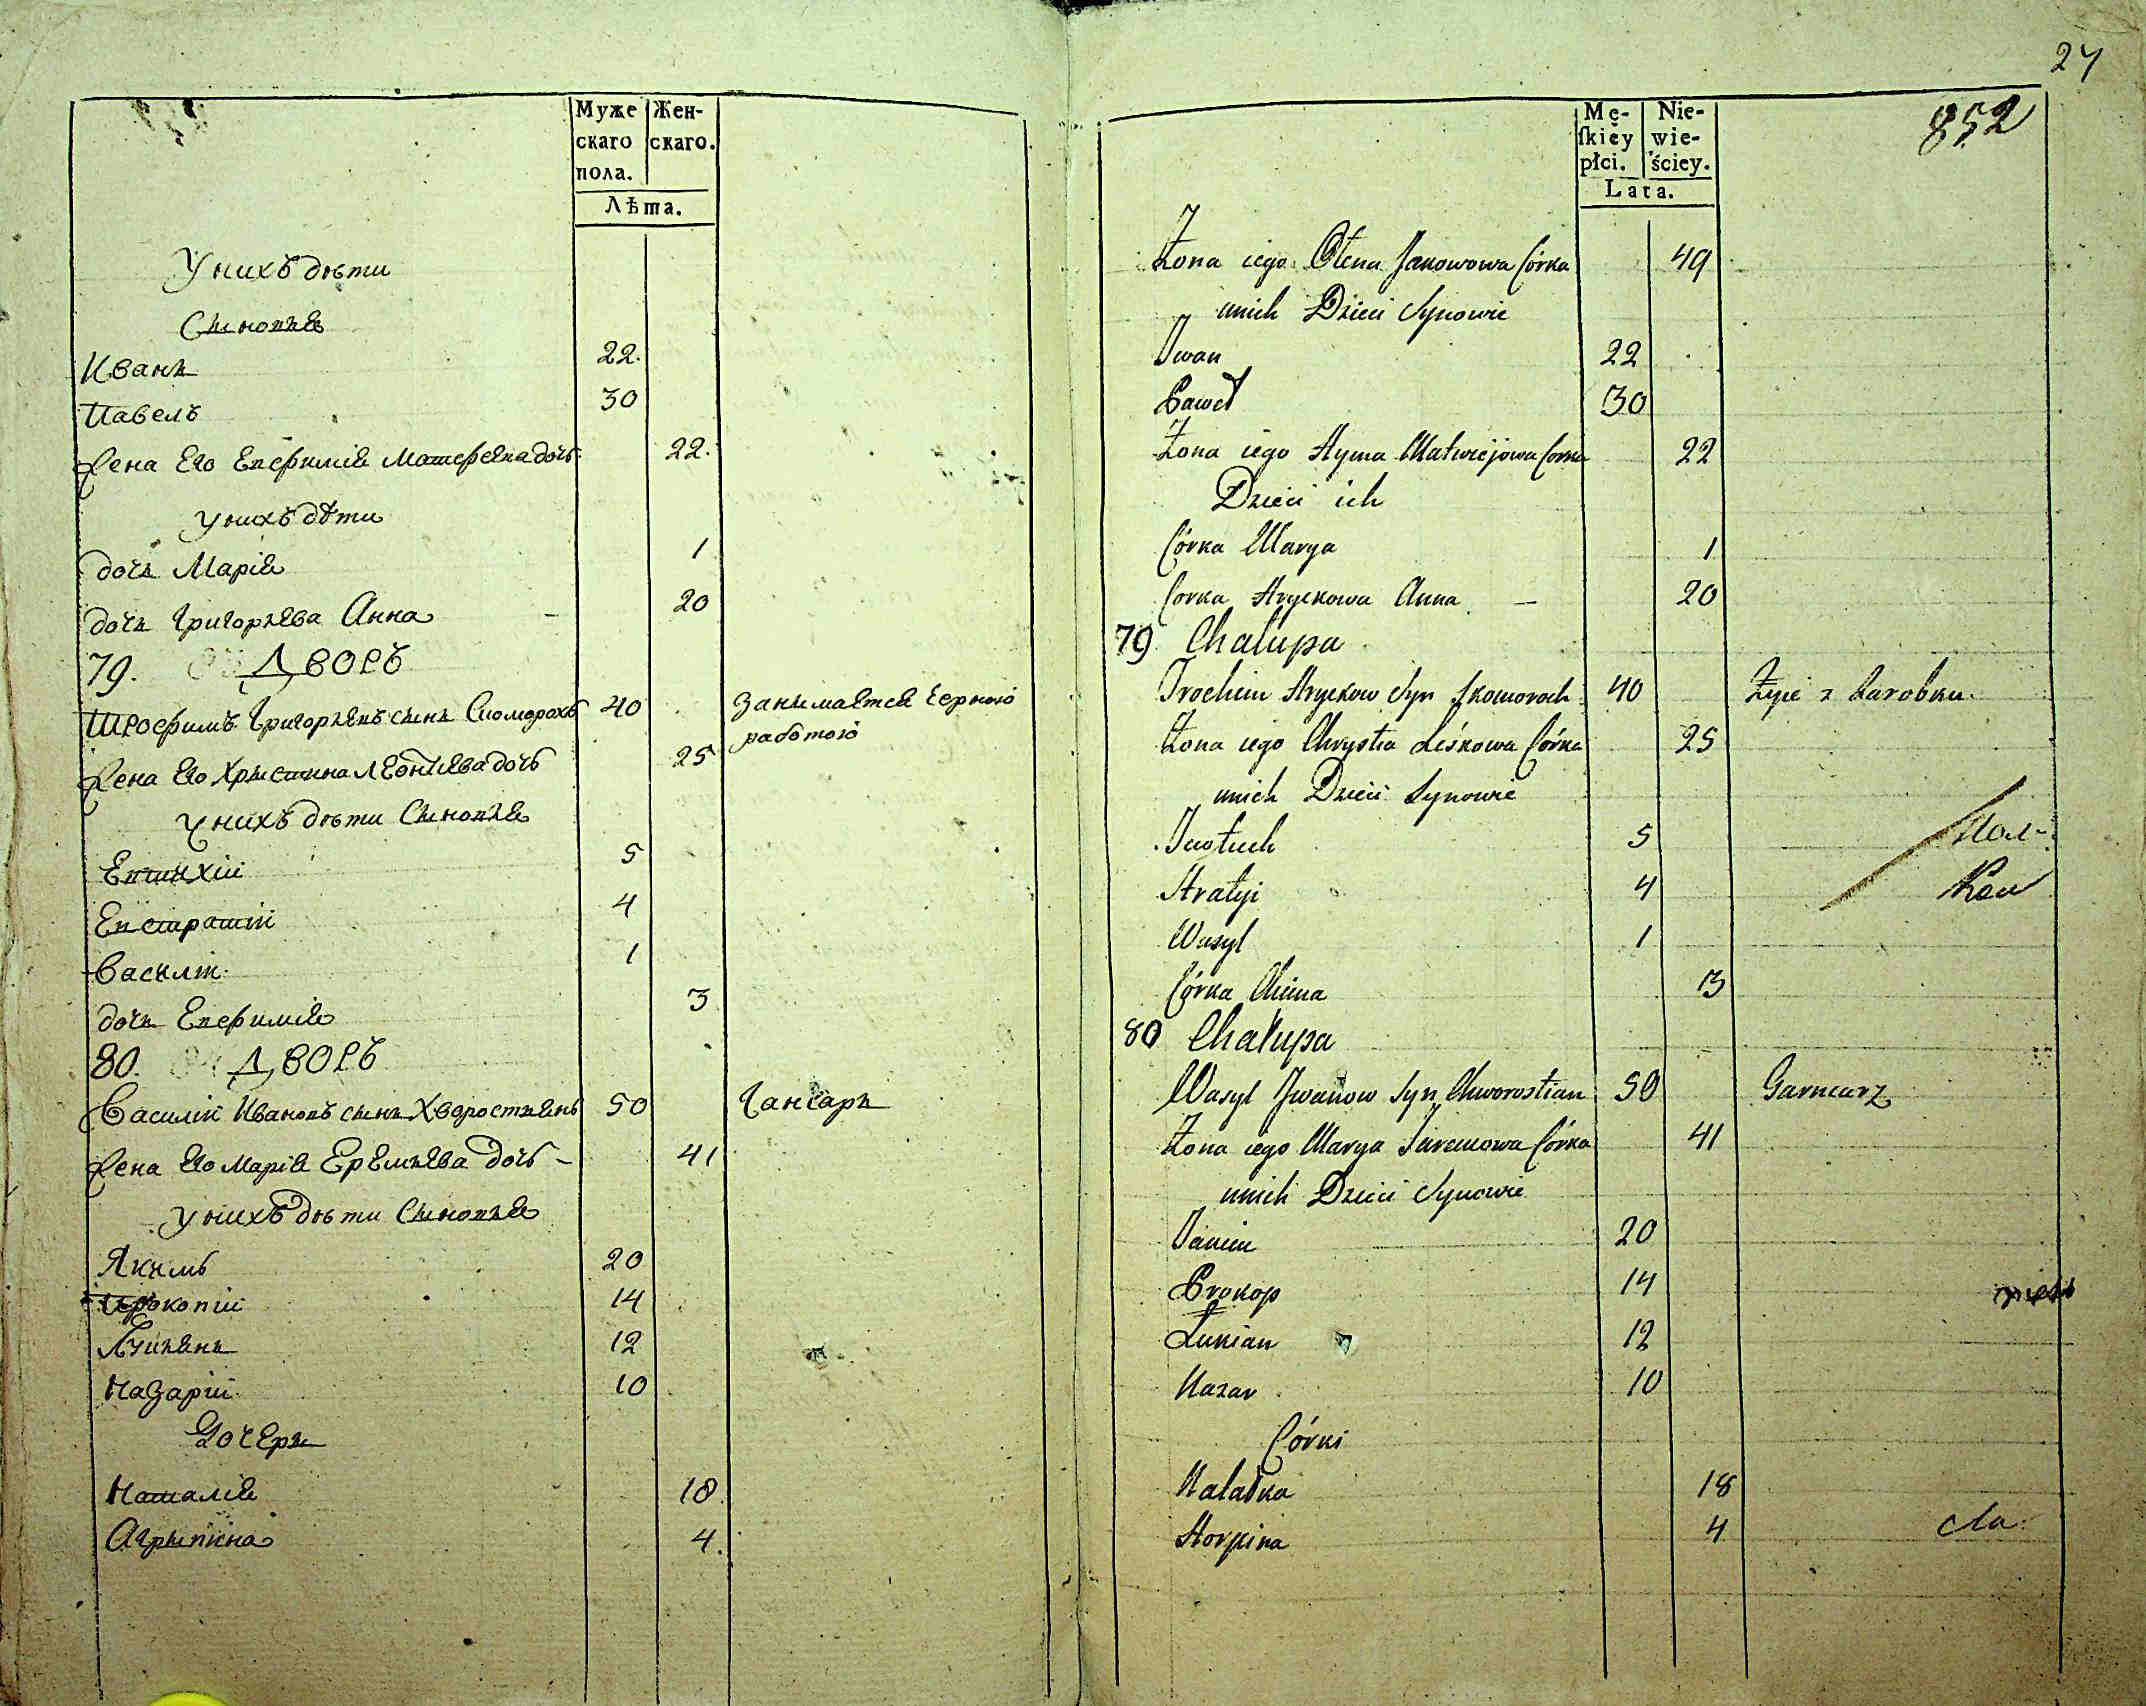 Муже
скаго
пола.
Жен-
скаго.
Лѣта.
У нихъ дѣти
Сыновья
Иванъ 22.
Павелъ 30
жена Его Евфимія Матфеева дочь 22.
у нихъ дѣти
дочь Марія 1
дочь Григорьева Анна 20
79. Дворъ
Трофимъ Григорьевъ сынъ Скоморохъ 40 занимается черною
работою
жена Его Христина Леонтіева дочь 25
у нихъ дѣти Сыновья
Евтихій 5
Евстратій 4
Василій 1
дочь Евфимія 3
80. Дворъ
Василій Ивановъ сынъ Хворостянъ 50 Ганчарь
жена Его Марія Еремѣева дочь 41
у нихъ дѣти Сыновья
Якимъ 20
Прокопій 14
Лукьянъ 12
Назарій 10
Дочери
Наталія 18
Агрипина 4.
24
852
Mę-
skiey
płci.
Nie-
wie-
ściey.
Lata.
Żona iego Olena Jakowowa Córka 49
unich Dzieci Synowie
Iwan 22
Paweł 30
Żona iego Hyma Matwiejowa Corka 22
Dzieci ich
Córka Marya 1
Corka Hryckowa Anna 20
79 Chalupa
Trochim Hryckow Syn Skomoroch 40 Żyie z Zarobku
Żona iego Chrystia Leśkowa Córka 25
unich Dzieci Synowie
Jawtuch 5
Hratyi 4
Wasyl 1
Córka Chima 3
80 Chałupa
Wasyl Jwanow Syn Chworostian 50 Garncarz
Żona iego Marya Jaremowa Córka 41
unich Dzieci Synowie
Jakim 20
Prokop 14
Łukian 12
Nazar 10
Córki
Natalka 18
Horpina 4